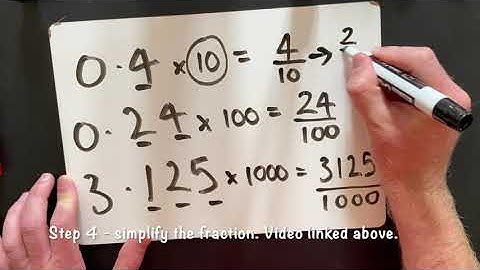 0.4 × 10 = 4/10 → 2
0.24 × 100 = 24/100
3.125 × 1000 = 3125/1000
Step 4 - simplify the fraction. Video linked above.